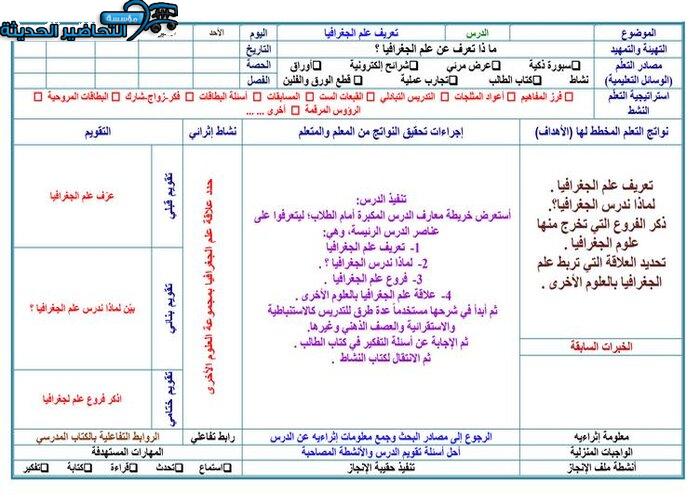 مؤسسة
التحاضير الحديثة
الموضوع
الدرس
تعريف علم الجغرافيا
اليوم
الأحد
التهيئة والتمهيد
ما ذا تعرف عن علم الجغرافيا ؟
التاريخ
مصادر التعلم
سبورة ذكية
عرض مرئي
شرائح إلكترونية
أوراق
الحصة
(الوسائل التعليمية)
نشاط
كتاب الطالب
تجارب عملية
قطع الورق والفلين
الفصل
استراتيجية التعلم
فرز المفاهيم
أعواد المثلجات
التدريس التبادلي
القبعات الست
المسابقات
أسئلة البطاقات
فكر-زواج-شارك
البطاقات المروحية
النشط
الرؤوس المرقمة
أخرى ... ...
نواتج التعلم المخطط لها (الأهداف)
إجراءات تحقيق النواتج من المعلم والمتعلم
نشاط إثرائي
التقويم
تعريف علم الجغرافيا .
لماذا ندرس الجغرافيا؟.
ذكر الفروع التي تخرج منها
علوم الجغرافيا .
تحديد العلاقة التي تربط علم
الجغرافيا بالعلوم الأخرى .
الخبرات السابقة
تنفيذ الدرس:
أستعرض خريطة معارف الدرس المكبرة أمام الطلاب؛ ليتعرفوا على
عناصر الدرس الرئيسة، وهي:
1- تعريف علم الجغرافيا
2- لماذا ندرس الجغرافيا ؟ .
3- فروع علم الجغرافيا .
4- علاقة علم الجغرافيا بالعلوم الأخرى .
ثم أبدأ في شرحها مستخدماً عدة طرق للتدريس كالاستنباطية
والاستقرائية والعصف الذهني وغيرها.
ثم الإجابة عن أسئلة التفكير في كتاب الطالب .
ثم الانتقال لكتاب النشاط .
حدد علاقة علم الجغرافيا بمجموعة العلوم الأخرى
تقويم قبلي
عرّف علم الجغرافيا
تقويم بنائي
بيّن لماذا ندرس علم الجغرافيا ؟
تقويم ختامي
اذكر فروع علم لجغرافيا
معلومة إثراءيه
الرجوع إلى مصادر البحث وجمع معلومات إثراءيه عن الدرس
رابط تفاعلي
الروابط التفاعلية بالكتاب المدرسي
الواجبات المنزلية
أحل أسئلة تقويم الدرس والأنشطة المصاحبة
المهارات المستهدفة
أنشطة ملف الإنجاز
تنفيذ حقيبة الإنجاز
استماع
تحدث
قراءة
كتابة
تفكير